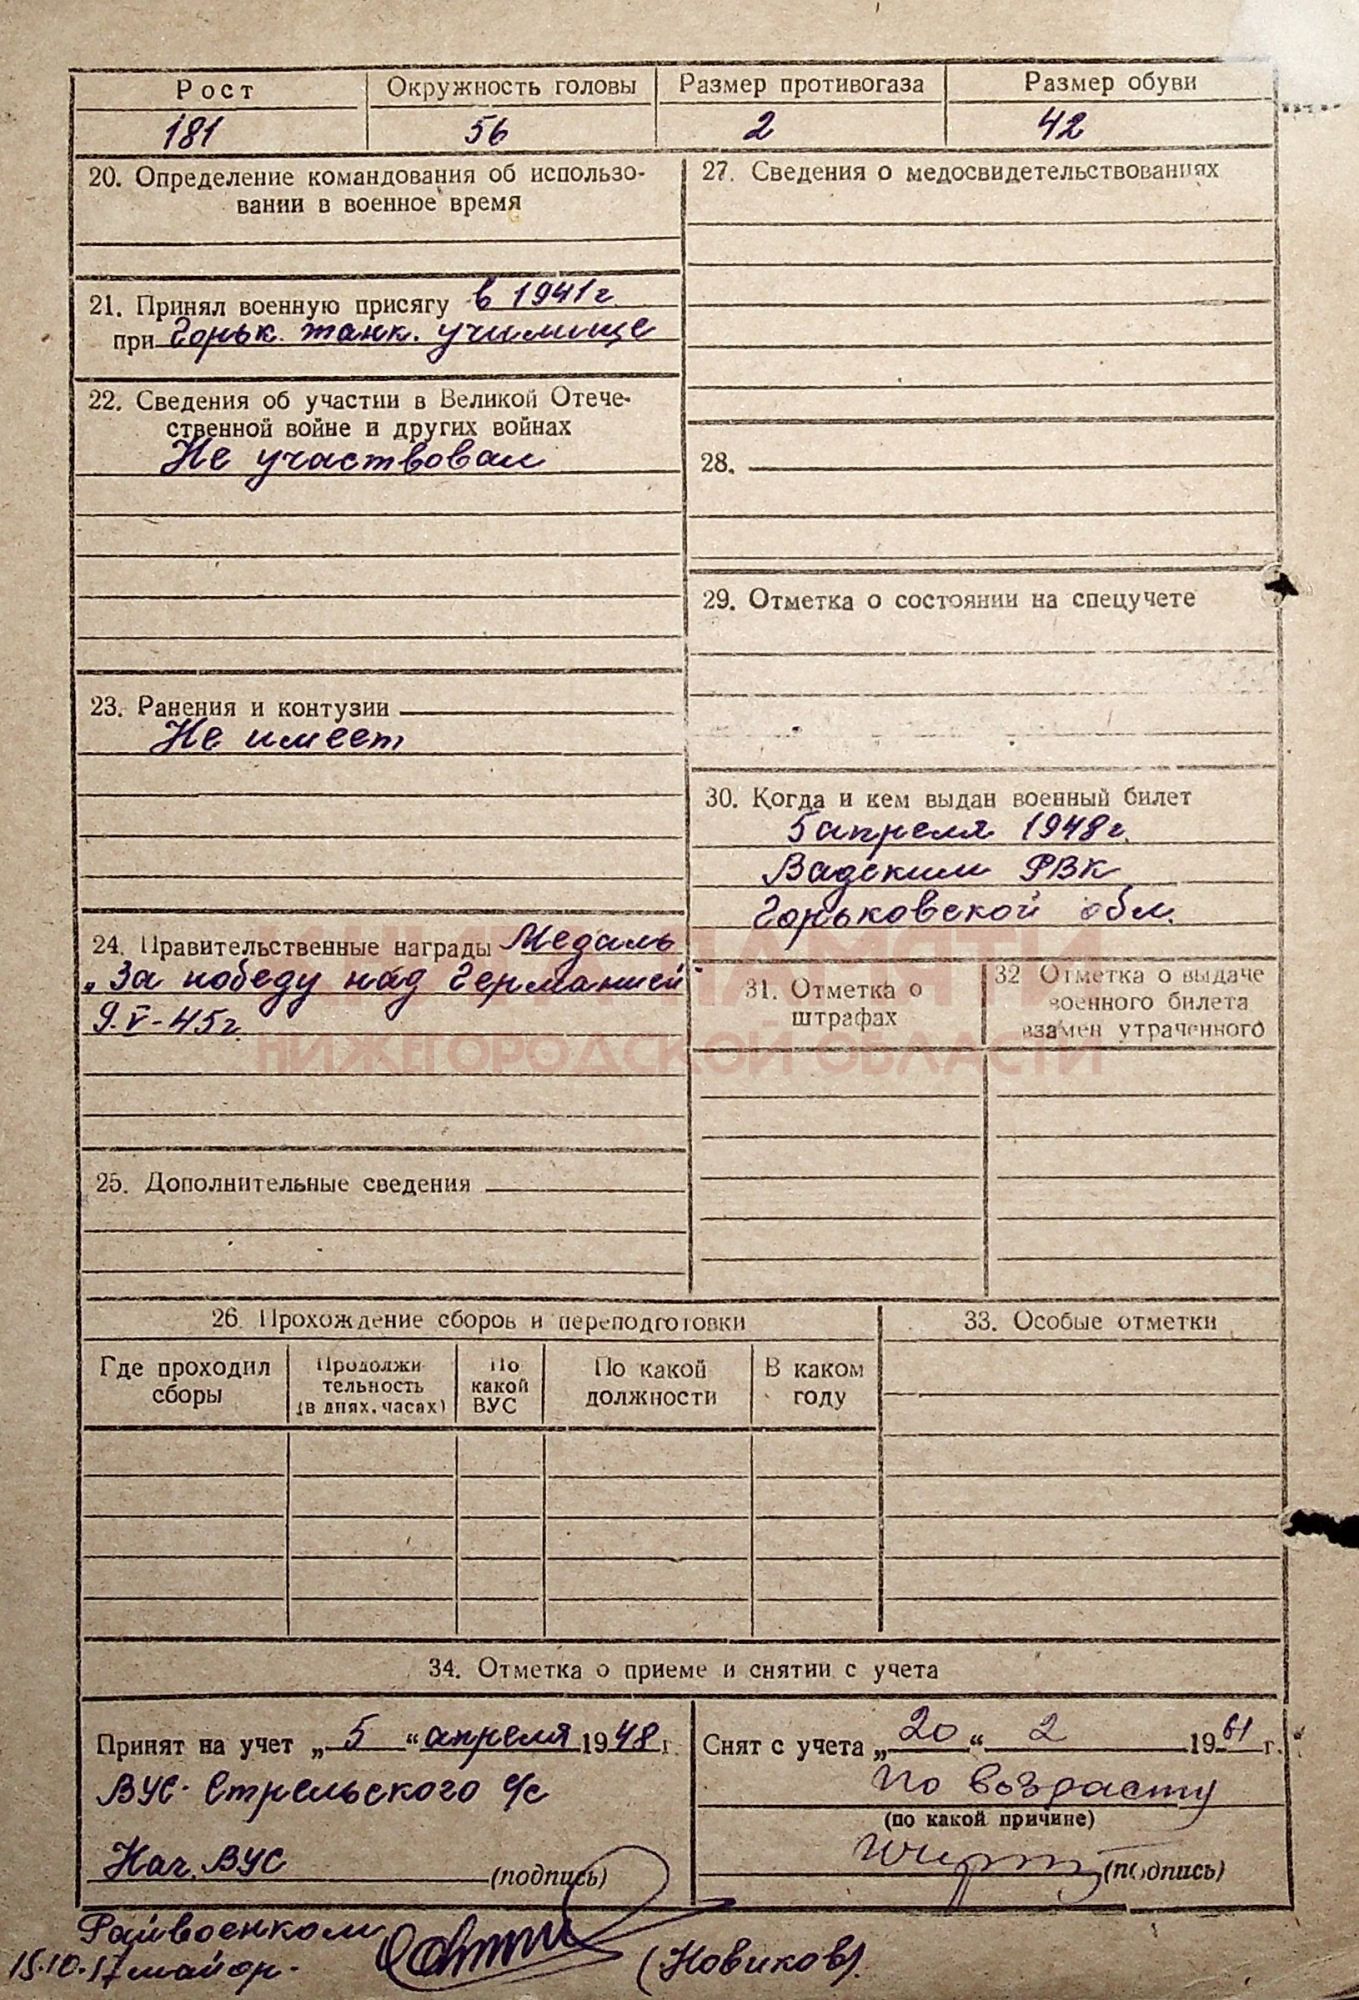 Рост Окружность головы Размер противогаза Размер обуви
181 56 2 42
20. Определение командования об использо-
вании в военное время
21. Принял военную присягу в 1941 г.
при Горьк. танк. училище
22. Сведения об участии в Великой Отече-
ственной войне и других войнах
Не участвовал
23. Ранения и контузии
Не имеет
24. Правительственные награды Медаль
„За победу над Германией"
9.V-45г.
25. Дополнительные сведения
27. Сведения о медосвидетельствованиях
28.
29. Отметка о состоянии на спецучете
30. Когда и кем выдан военный билет
5 апреля 1948 г.
Вадским РВК
Горьковской обл.
31. Отметка о
штрафах
32 Отметка о выдаче
военного билета
взамен утраченного
КНИГА ПАМЯТИ
НИЖЕГОРОДСКОЙ ОБЛАСТИ
26. Прохождение сборов и переподготовки
Где проходил
сборы
Продолжи
тельность
(в днях, часах)
По
какой
ВУС
По какой
должности
В каком
году
33. Особые отметки
34. Отметка о приеме и снятии с учета
Принят на учет „5“ апреля 1948 г.
ВУС Стрельского с/с
Нач. ВУС (подпись)
Снят с учета „20“ 2 1961 г.
по возрасту
(по какой причине)
(подпись)
Райвоенком
майор (Новиков).